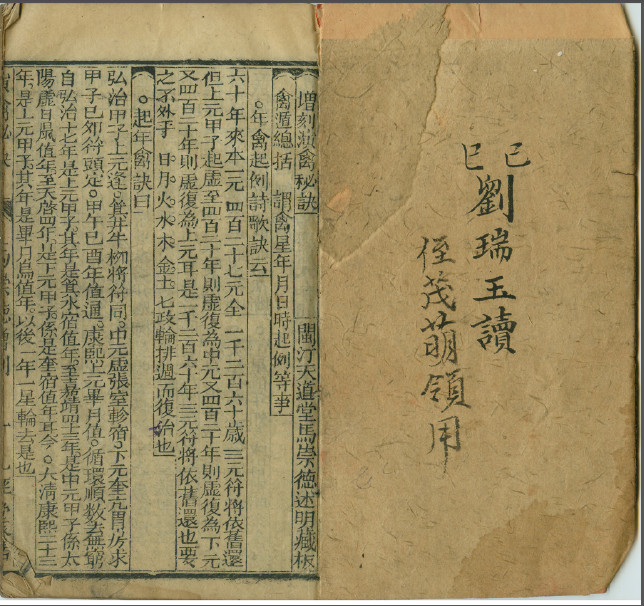 己巳
劉瑞玉讀
侄茂萌領用
增刻演禽秘訣
閩汀大道堂馬崇德述明藏板
禽遁總括 謂禽星年月日時起例等事
○年禽起例詩歌訣云
六十年來本一元 四百二十七元全 一千二百六十歲 三元符將依舊還
但上元甲子起虛至四百二十年則虛復為中元又四百二十年則虛復為下元
又四百二十年則虛復為上元耳是一千二百六十年三元符將依舊還也要
之不外乎 日月火水木金土七政輪排週而復始也
○起年禽訣曰
弘治甲子上元逢○箕井牛柳將符同○中元虛張室軫宿○下元奎亢胃房求
甲子己卯符頭定○甲午己酉年值逼○康熙上元畢月值○循環順數去無窮
自弘治十七年是上元甲子其年是箕水宿值年至嘉靖四十三年是中元甲子係太
陽虛日鼠值年至天啓四年是上元甲子係是奎宿值年耳今○大清康熙二十三
年是上元甲子其年是畢月烏值年以後一年一星輪去是也